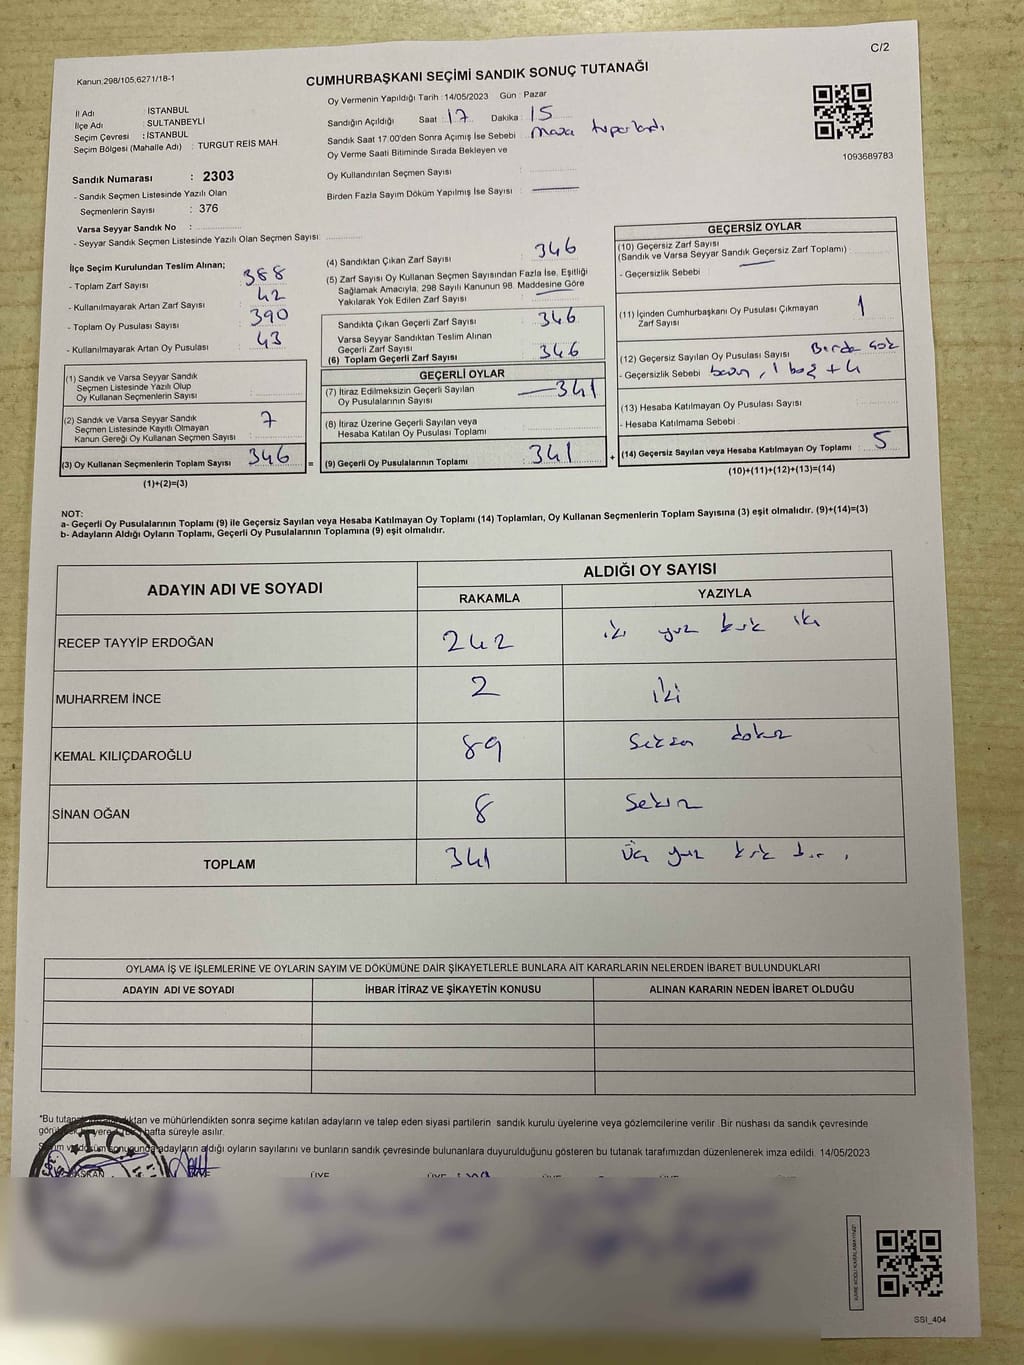 C/2
Kanun.298/105,6271/18-1
CUMHURBAŞKANI SEÇİMİ SANDIK SONUÇ TUTANAĞI
İl Adı : İSTANBUL
İlçe Adı : SULTANBEYLİ
Seçim Çevresi : İSTANBUL
Seçim Bölgesi (Mahalle Adı) : TURGUT REİS MAH.
Oy Vermenin Yapıldığı Tarih : 14/05/2023 Gün : Pazar
Sandığın Açıldığı Saat : 17 Dakika : 15
Sandık Saat 17.00'den Sonra Açımış İse Sebebi : masa toparlandı
Oy Verme Saati Bitiminde Sırada Bekleyen ve
Oy Kullandırılan Seçmen Sayısı :
Birden Fazla Sayım Döküm Yapılmış İse Sayısı :
1093689783
Sandık Numarası : 2303
- Sandık Seçmen Listesinde Yazılı Olan
Seçmenlerin Sayısı : 376
Varsa Seyyar Sandık No :
- Seyyar Sandık Seçmen Listesinde Yazılı Olan Seçmen Sayısı:
İlçe Seçim Kurulundan Teslim Alınan;
- Toplam Zarf Sayısı : 388
- Kullanılmayarak Artan Zarf Sayısı : 42
- Toplam Oy Pusulası Sayısı : 390
- Kullanılmayarak Artan Oy Pusulası : 43
(1) Sandık ve Varsa Seyyar Sandık
Seçmen Listesinde Yazılı Olup
Oy Kullanan Seçmenlerin Sayısı :
(2) Sandık ve Varsa Seyyar Sandık
Seçmen Listesinde Kayıtlı Olmayan
Kanun Gereği Oy Kullanan Seçmen Sayısı : 7
(3) Oy Kullanan Seçmenlerin Toplam Sayısı 346 =
(1)+(2)=(3)
(4) Sandıktan Çıkan Zarf Sayısı : 346
(5) Zarf Sayısı Oy Kullanan Seçmen Sayısından Fazla İse, Eşitliği
Sağlamak Amacıyla, 298 Sayılı Kanunun 98. Maddesine Göre
Yakılarak Yok Edilen Zarf Sayısı :
Sandıkta Çıkan Geçerli Zarf Sayısı : 346
Varsa Seyyar Sandıktan Teslim Alınan
Geçerli Zarf Sayısı :
(6) Toplam Geçerli Zarf Sayısı : 346
GEÇERLİ OYLAR
(7) İtiraz Edilmeksizin Geçerli Sayılan
Oy Pusulalarının Sayısı : 341
(8) İtiraz Üzerine Geçerli Sayılan veya
Hesaba Katılan Oy Pusulası Toplamı :
(9) Geçerli Oy Pusulalarının Toplamı : 341 +
GEÇERSİZ OYLAR
(10) Geçersiz Zarf Sayısı
(Sandık ve Varsa Seyyar Sandık Geçersiz Zarf Toplamı) :
- Geçersizlik Sebebi :
(11) İçinden Cumhurbaşkanı Oy Pusulası Çıkmayan
Zarf Sayısı : 1
(12) Geçersiz Sayılan Oy Pusulası Sayısı : Birden çok
- Geçersizlik Sebebi : basım, 1 boş + 4
(13) Hesaba Katılmayan Oy Pusulası Sayısı :
- Hesaba Katılmama Sebebi :
(14) Geçersiz Sayılan veya Hesaba Katılmayan Oy Toplamı : 5
(10)+(11)+(12)+(13)=(14)
NOT:
a- Geçerli Oy Pusulalarının Toplamı (9) ile Geçersiz Sayılan veya Hesaba Katılmayan Oy Toplamı (14) Toplamları, Oy Kullanan Seçmenlerin Toplam Sayısına (3) eşit olmalıdır. (9)+(14)=(3)
b- Adayların Aldığı Oyların Toplamı, Geçerli Oy Pusulalarının Toplamına (9) eşit olmalıdır.
ADAYIN ADI VE SOYADI ALDIĞI OY SAYISI
RAKAMLA YAZIYLA
RECEP TAYYİP ERDOĞAN 242 iki yüz kırk iki
MUHARREM İNCE 2 iki
KEMAL KILIÇDAROĞLU 89 Seksen dokuz
SİNAN OĞAN 8 Sekiz
TOPLAM 341 Üç yüz kırk bir
OYLAMA İŞ VE İŞLEMLERİNE VE OYLARIN SAYIM VE DÖKÜMÜNE DAİR ŞİKAYETLERLE BUNLARA AİT KARARLARIN NELERDEN İBARET BULUNDUKLARI
ADAYIN ADI VE SOYADI İHBAR İTİRAZ VE ŞİKAYETİN KONUSU ALINAN KARARIN NEDEN İBARET OLDUĞU
*Bu tutanak ve mühürlendikten sonra seçime katılan adayların ve talep eden siyasi partilerin sandık kurulu üyelerine veya gözlemcilerine verilir .Bir nüshası da sandık çevresinde
hafta süreyle asılır.
adayların aldığı oyların sayılarını ve bunların sandık çevresinde bulunanlara duyurulduğunu gösteren bu tutanak tarafımızdan düzenlenerek imza edildi. 14/05/2023
T.C.
BAŞKAN ÜYE ÜYE ÜYE ÜYE ÜYE
SSI_404